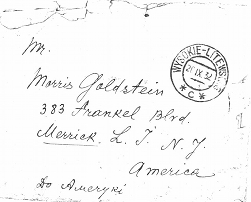 Mr.
WYSOKIE-LITEWSKIE
21 IX 32
* c *
Morris Goldstein
383 Frankel Blvd.
Merrick L. I. N. Y.
America
Do Ameryki